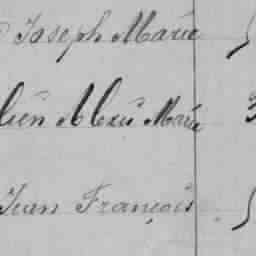 Joseph Marie
lien Alexis Marie
Jean François